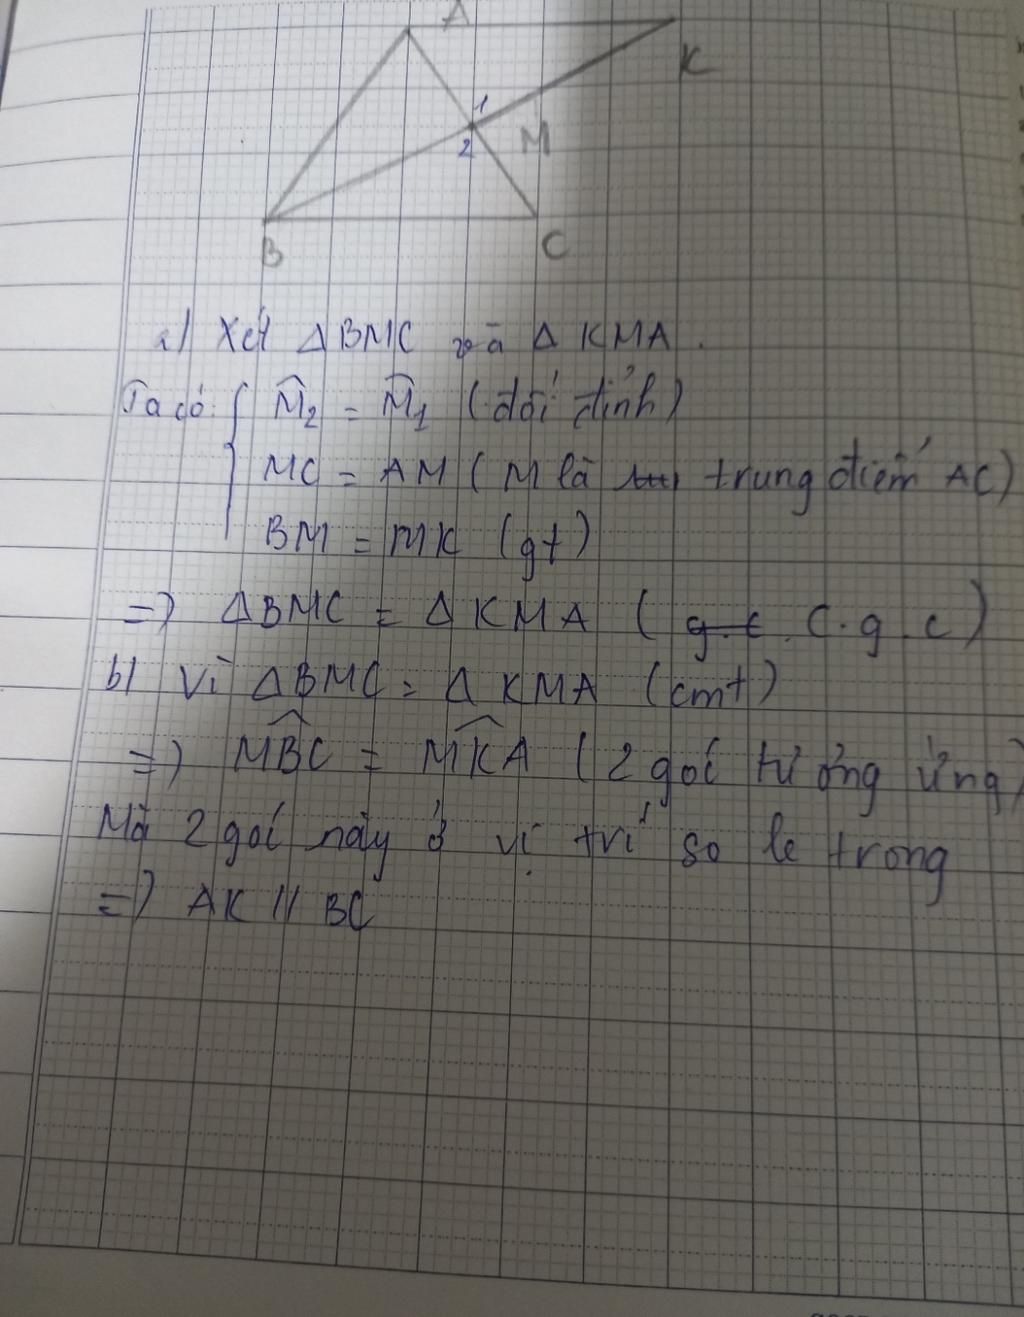 A
K
1
2
M
B
C
a) Xét ΔBMC và ΔKMA.
Ta có: { M̂₂ = M̂₁ (đối đỉnh)
MC = AM (M là trung điểm AC)
BM = MK (gt)
=> ΔBMC = ΔKMA (g.c c.g.c)
b) Vì ΔBMC = ΔKMA (cmt)
=> MB̂C = MK̂A (2 goí tương ứng)
Mà 2 goí này ở vị trí so le trong
=> AK // BC